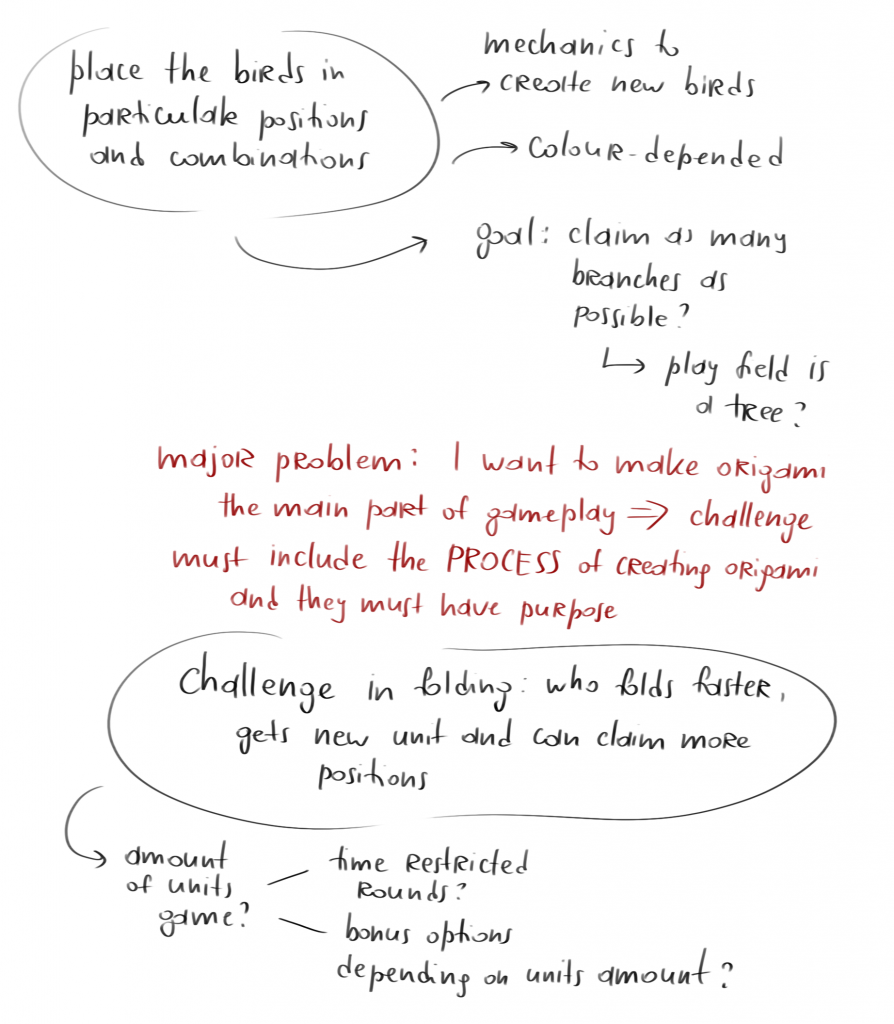 place the birds in
particular positions
and combinations
mechanics to
create new birds
colour-depended
goal: claim as many
branches as
possible?
play field is
a tree?
major problem: I want to make origami
the main part of gameplay => challenge
must include the PROCESS of creating origami
and they must have purpose
challenge in folding: who folds faster,
gets new unit and can claim more
positions
amount
of units
game?
time restricted
rounds?
bonus options
depending on units amount?